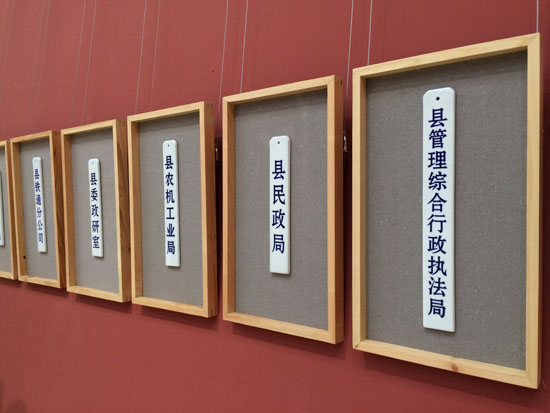 县铁通分公司
县委政研室
县农机工业局
县民政局
县管理综合行政执法局